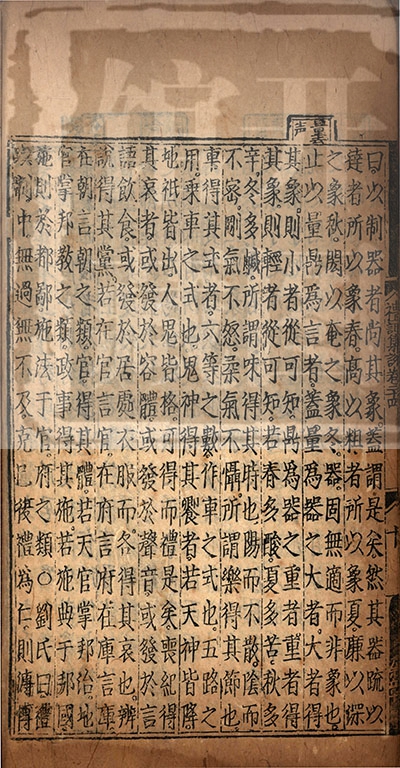 曰以制器者尚其象蓋謂是矣然其器疏以
達者所以象春高以粗者所以象夏廉以深
之象秋閎以奄之象冬器固無適而非象也
止以量鼎爲言者蓋量爲器之大者大者得
其象則小者從可知鼎爲器之重者重者得
其象則輕者從可知若春多酸夏多苦秋多
辛冬多鹹所謂味得其時也陽而不散陰而
不密剛氣不怒柔氣不懾所謂樂得其節也
車得其式者六等之數作車之式也五路之
用乗車之式也鬼神得其饗者若天神皆降
地祇皆出人鬼皆格可得而禮是矣喪紀得
其哀者或發於容體或發於聲音或發於言
語飲食或發於居處衣服而各得其哀也辨
說得其黨若在官言官在府言府在庫言庫
在朝言朝之類官得其體若天官掌邦治地
官掌邦教之類政事得其施若施典于邦國
施則於都鄙施法于官府之類○劉氏曰禮
以制中無過無不及克已復禮為仁則溥博
禮記集說卷